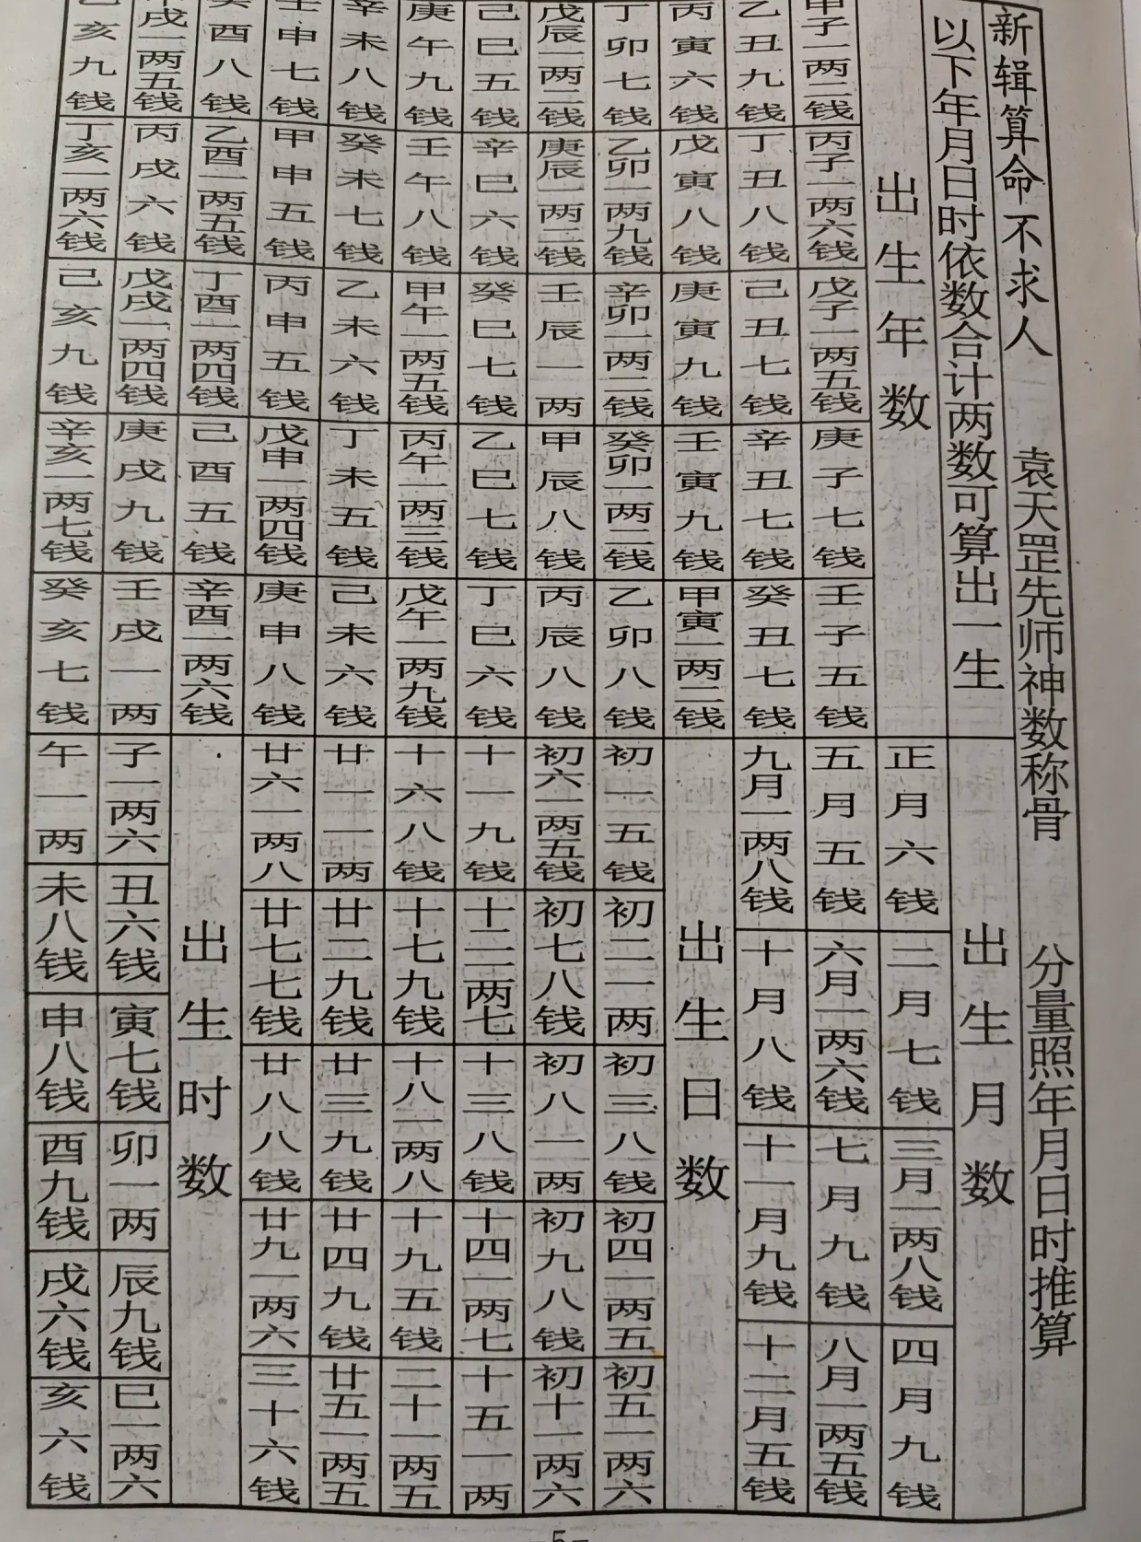 新辑算命不求人 袁天罡先师神数称骨 分量照年月日时推算
以下年月日时依数合计两数可算出一生
出生年数
甲子一两二钱 丙子一两六钱 戊子一两五钱 庚子七钱 壬子五钱
乙丑九钱 丁丑八钱 己丑七钱 辛丑七钱 癸丑七钱
丙寅六钱 戊寅八钱 庚寅九钱 壬寅九钱 甲寅一两二钱
丁卯七钱 乙卯一两九钱 辛卯一两二钱 癸卯一两二钱 乙卯八钱
戊辰一两二钱 庚辰一两二钱 壬辰一两 甲辰八钱 丙辰八钱
己巳五钱 辛巳六钱 癸巳七钱 乙巳七钱 丁巳六钱
庚午九钱 壬午八钱 甲午一两五钱 丙午一两三钱 戊午一两九钱
辛未八钱 癸未七钱 乙未六钱 丁未五钱 己未六钱
壬申七钱 甲申五钱 丙申五钱 戊申一两四钱 庚申八钱
癸酉八钱 乙酉一两五钱 丁酉一两四钱 己酉五钱 辛酉一两六钱
戌一两五钱 丙戌六钱 戊戌一两四钱 庚戌九钱 壬戌一两
亥九钱 丁亥一两六钱 己亥九钱 辛亥一两七钱 癸亥七钱
出生月数
正月六钱 二月七钱 三月一两八钱 四月九钱
五月五钱 六月一两六钱 七月九钱 八月一两五钱
九月一两八钱 十月八钱 十一月九钱 十二月五钱
出生日数
初一五钱 初二一两 初三八钱 初四一两五 初五一两六
初六一两五钱 初七八钱 初八一两 初九八钱 初十一两六
十一九钱 十二一两七 十三八钱 十四一两七 十五一两
十六八钱 十七九钱 十八一两八 十九五钱 二十一两五
廿一一两 廿二九钱 廿三九钱 廿四九钱 廿五一两五
廿六一两八 廿七七钱 廿八八钱 廿九一两六 三十六钱
出生时数
子一两六 丑六钱 寅七钱 卯一两 辰九钱 巳一两六
午一两 未八钱 申八钱 酉九钱 戌六钱 亥六钱
-5-